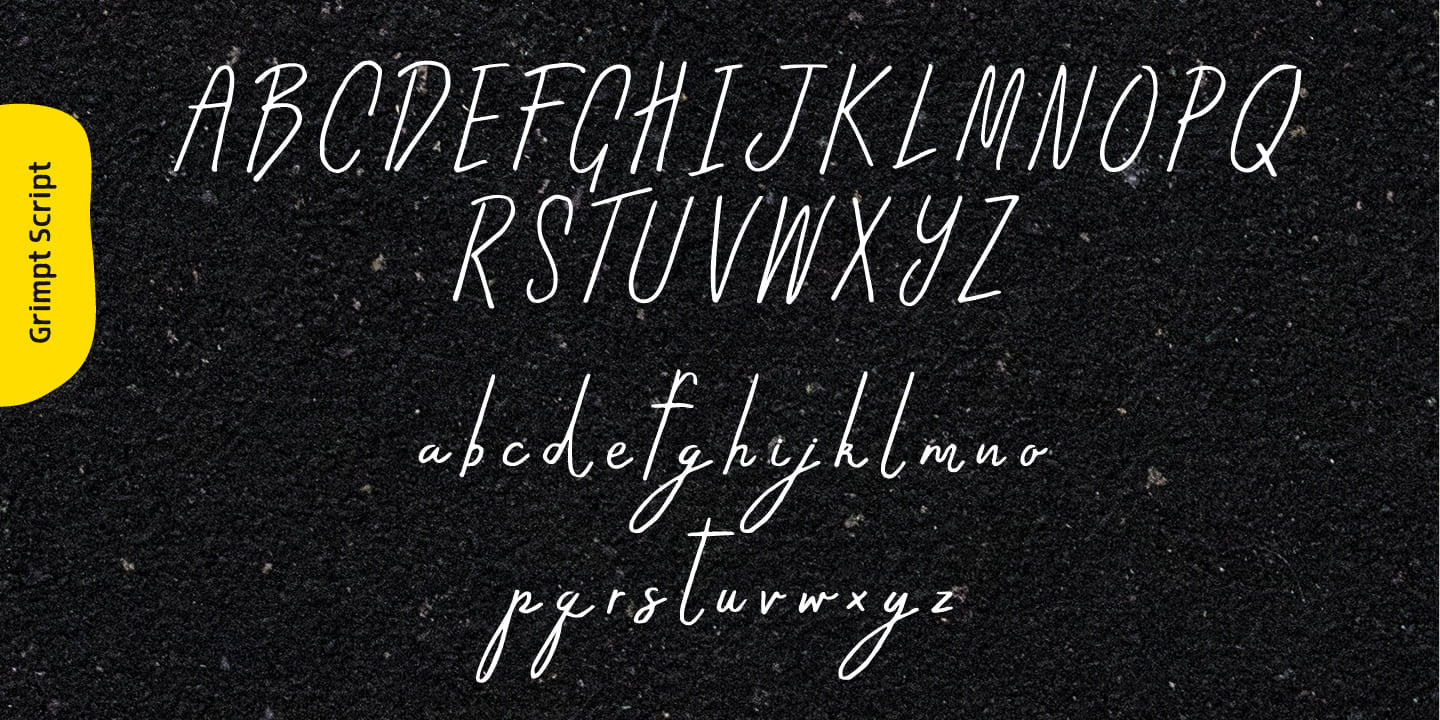 Grimpt Script
ABCDEFGHIJKLMNOPQ
RSTUVWXYZ
abcdefghijklmno
pqrstuvwxyz